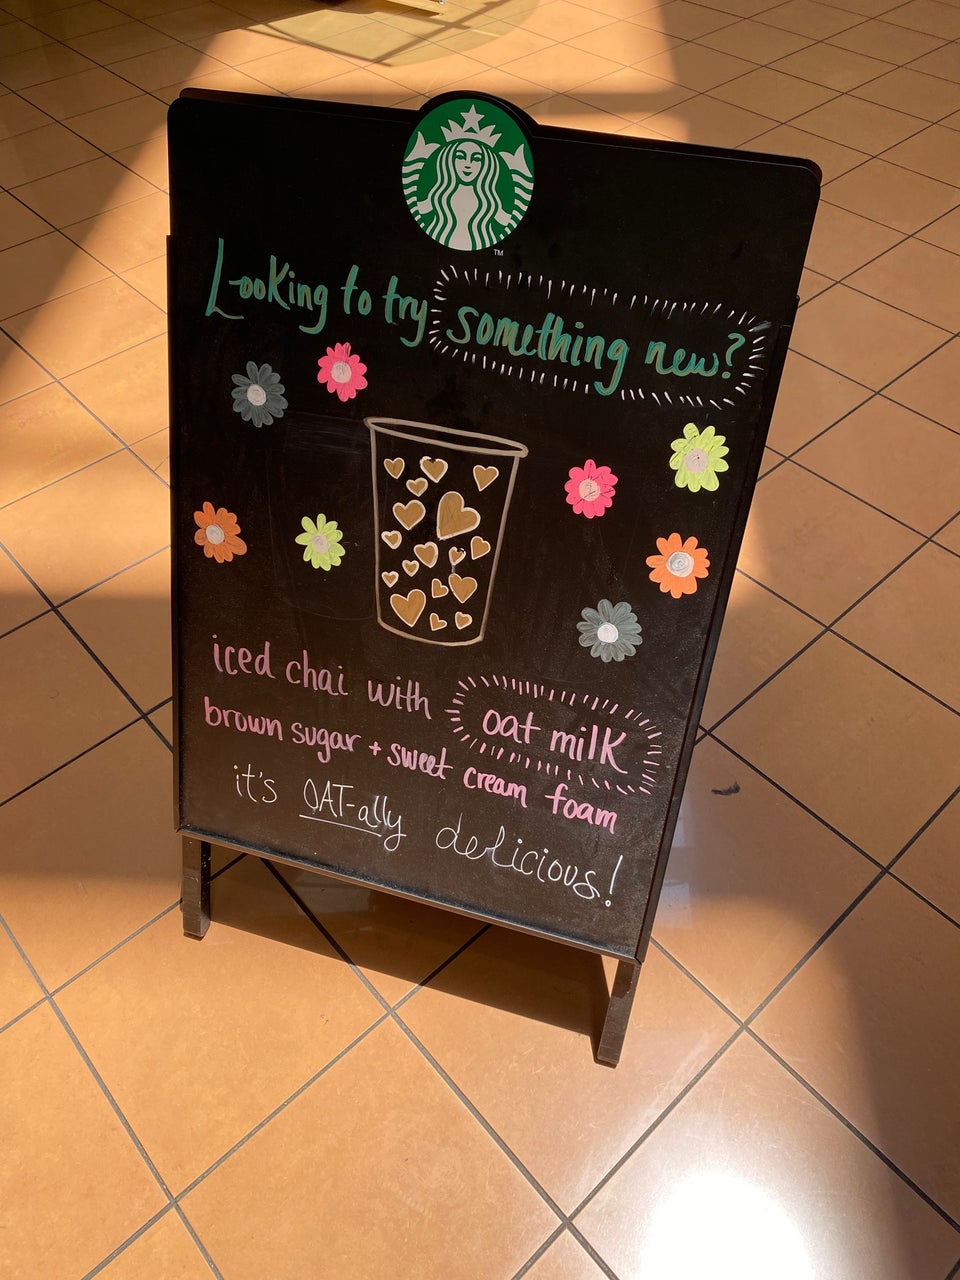 TM
Looking to try something new?
iced chai with oat milk
brown sugar + sweet cream foam
it's OAT-ally delicious!